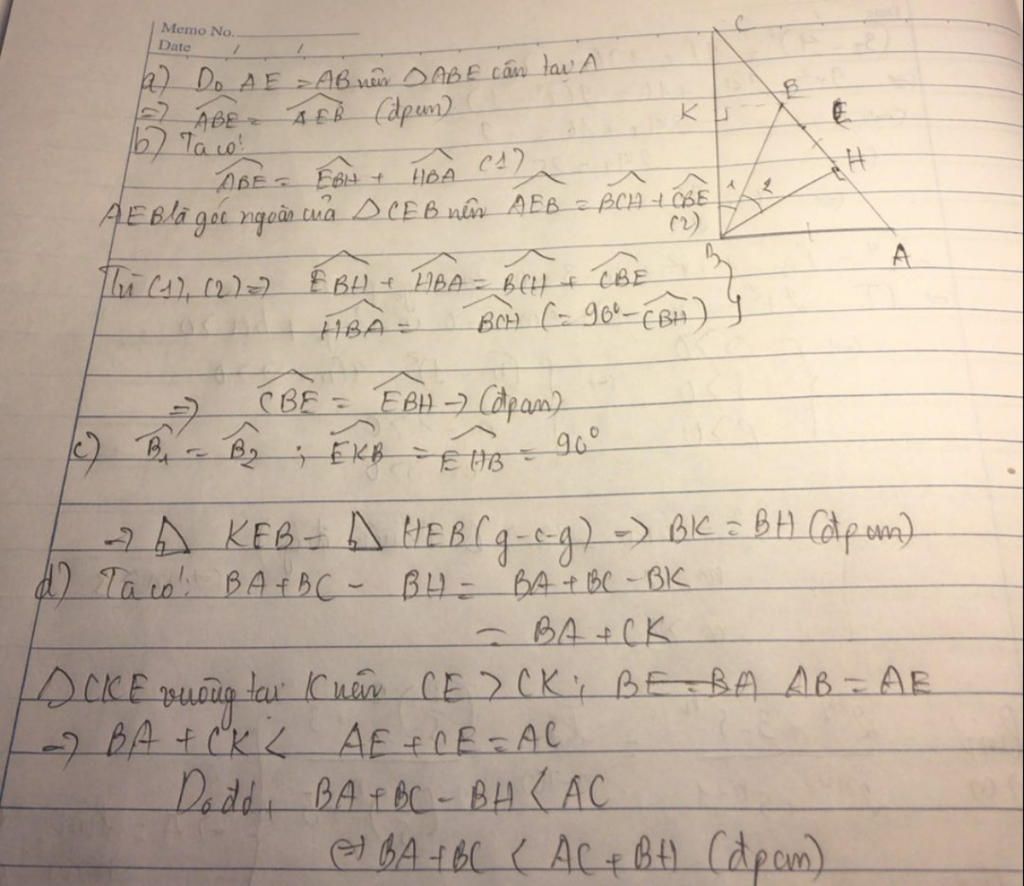 Memo No.
Date / /
a) Do AE = AB nên △ABE cân tại A
=> \widehat{ABE} = \widehat{AEB} (đpcm)
b) Ta có:
\widehat{ABE} = \widehat{EBH} + \widehat{HBA} (1)
AEB là góc ngoài của △CEB nên \widehat{AEB} = \widehat{BCH} + \widehat{CBE}
(2)
Từ (1), (2) => \widehat{EBH} + \widehat{HBA} = \widehat{BCH} + \widehat{CBE}
\widehat{HBA} = \widehat{BCH} (= 90° - \widehat{CBH}) }
=> \widehat{CBE} = \widehat{EBH} -> (đpcm)
c) \widehat{B_1} = \widehat{B_2} ; \widehat{EKB} = \widehat{EHB} = 90°
-> △ KEB = △ HEB (g-c-g) => BK = BH (đpcm)
d) Ta có: BA + BC - BH = BA + BC - BK
= BA + CK
△CKE vuông tại K nên CE > CK; BE = BA AB = AE
=> BA + CK < AE + CE = AC
Do đó, BA + BC - BH < AC
<=> BA + BC < AC + BH (đpcm)
C
E
K
E
H
1 2
B
A